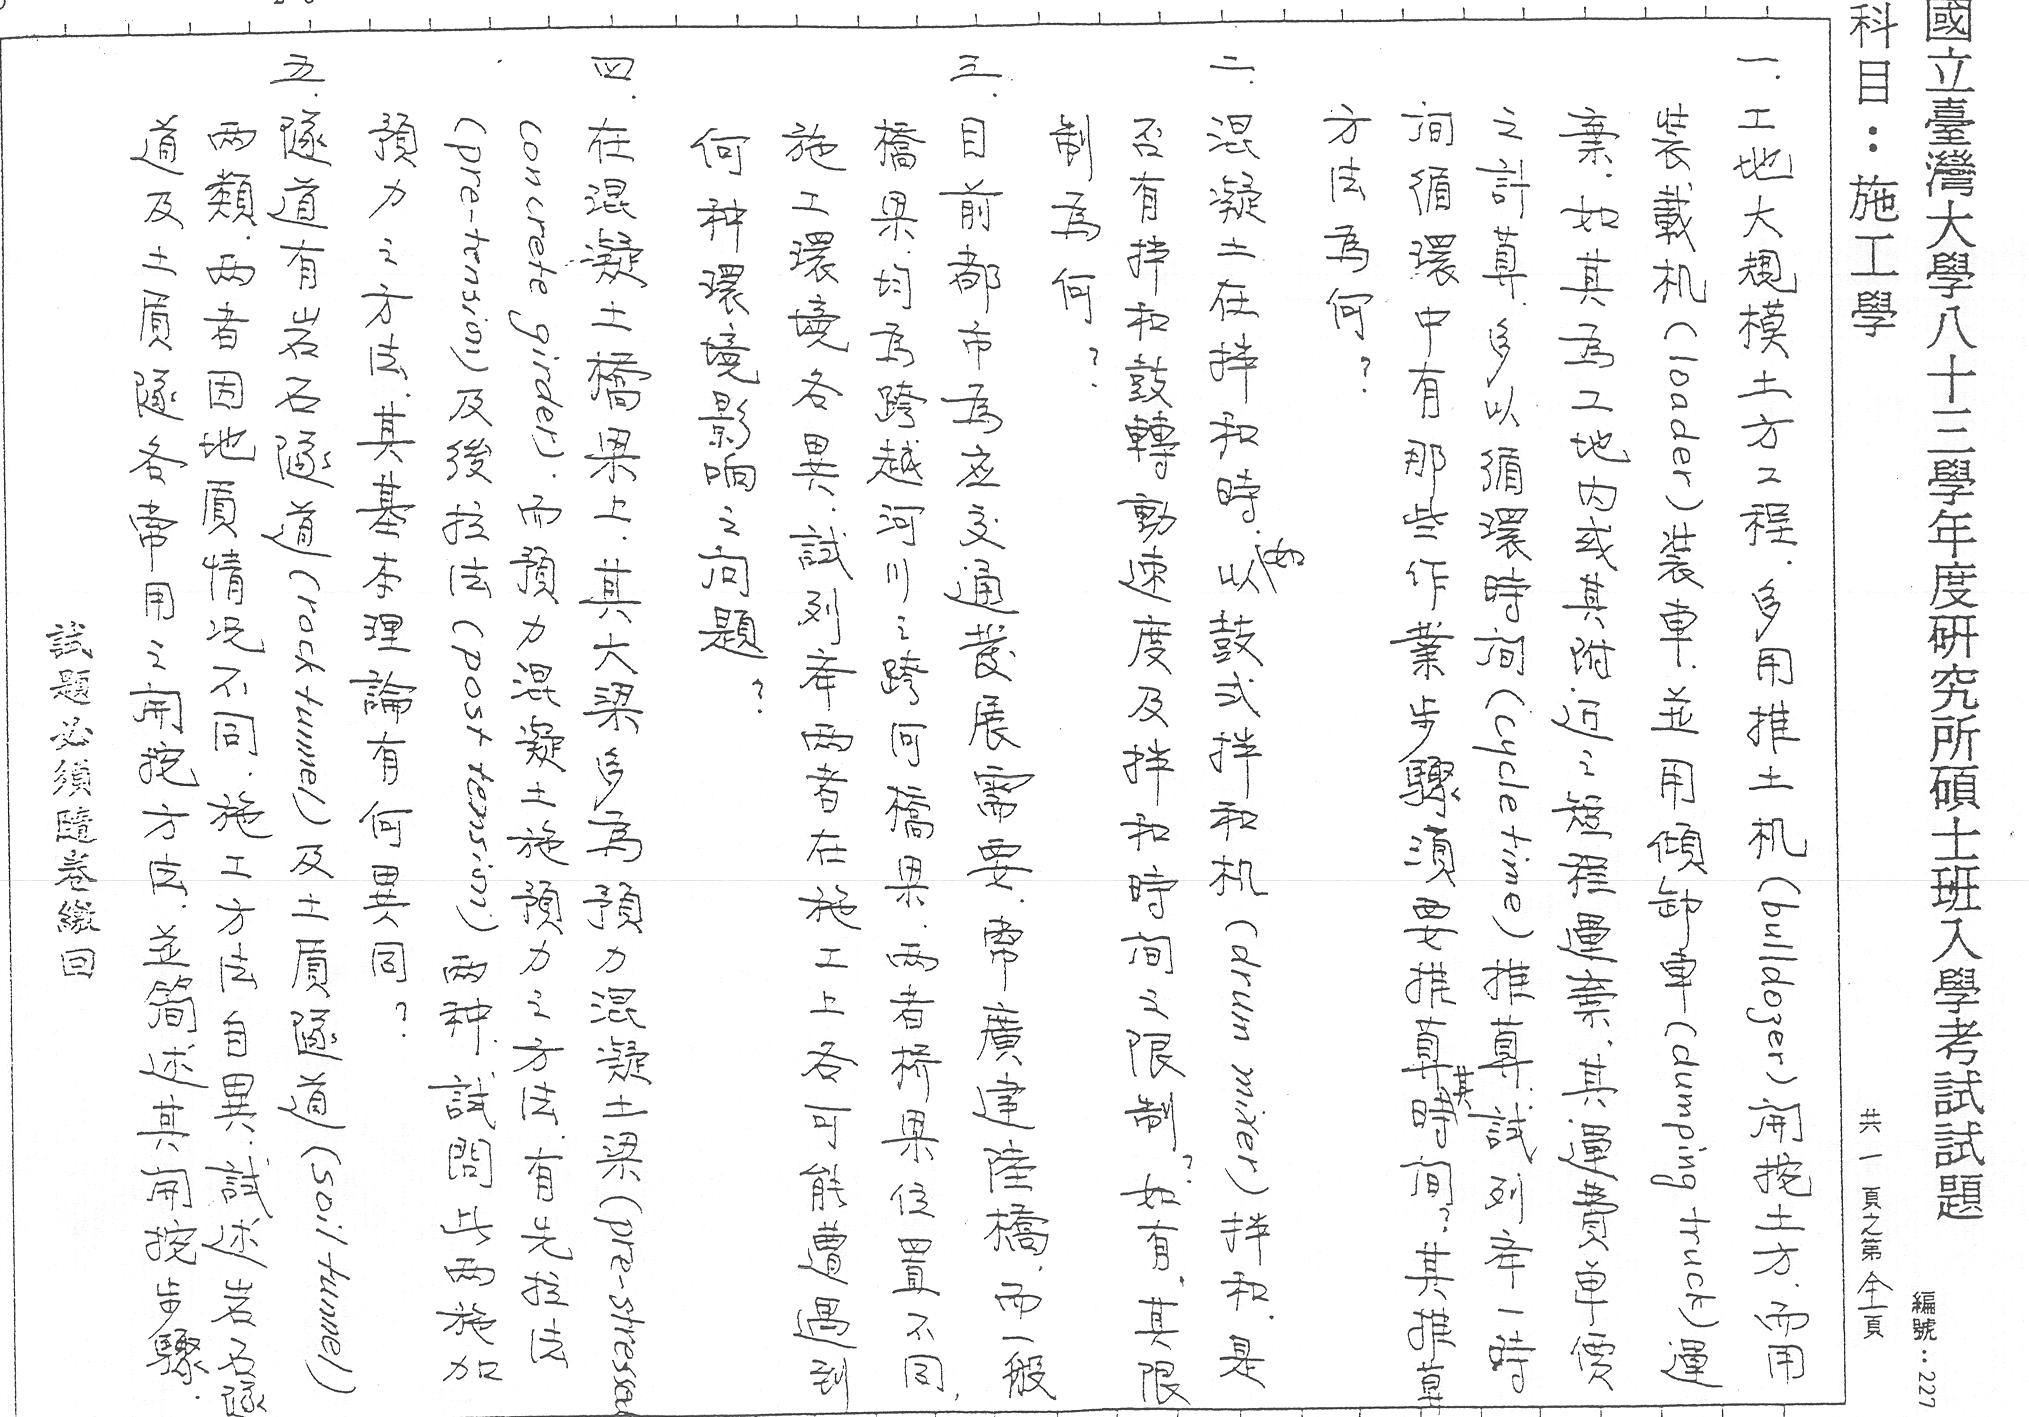 國立臺灣大學八十三學年度研究所碩士班入學考試試題
編號：227
科目：施工學
共一頁之第全頁
一.工地大規模土方工程.多用推土机(bulldozer)開挖土方.而用
裝載机(loader)裝車.並用傾卸車(dumping truck)運
棄.如其為工地內或其附近之短程運棄.其運費單價
之計算.多以循環時间(cycle time)推算.試列举一時
间循環中有那些作業步驟須要推算其時间?其推算
方法為何?
二.混凝土在拌和時.如以鼓式拌和机(drum mixer)拌和.是
否有拌和鼓轉動速度及拌和時间之限制?如有.其限
制為何?
三.目前都市為应交通發展需要.常廣建陸橋.而一般
橋梁.均為跨越河川之跨河橋梁.两者桥梁位置不同,
施工環境各異.試列举两者在施工上各可能遭遇到
何种環境影响之问題?
四.在混凝土橋梁上.其大梁多為預力混凝土梁(pre-stressed
concrete girder).而預力混凝土施預力之方法.有先拉法
(pre-tension)及後拉法(post tension)两种.試問此两施加
預力之方法.其基本理論有何異同?
五.隧道有岩石隧道(rock tunnel)及土質隧道(soil tunnel)
两類.两者因地質情况不同.施工方法自異.試述岩石隧
道及土質隧各常用之開挖方法.並簡述其開挖步驟.
試題必須隨卷繳回